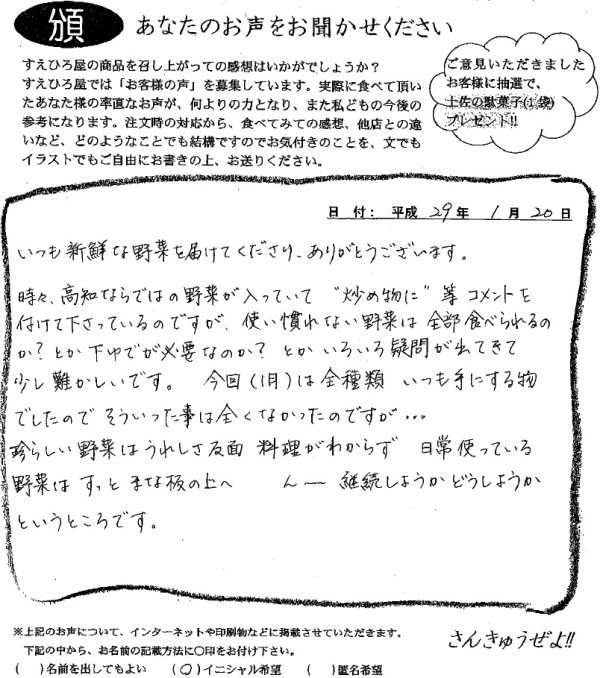 頒 あなたのお声をお聞かせください
すえひろ屋の商品を召し上がっての感想はいかがでしょうか？
すえひろ屋では「お客様の声」を募集しています。実際に食べて頂い
たあなた様の率直なお声が、何よりの力となり、また私どもの今後の
参考になります。注文時の対応から、食べてみての感想、他店との違
いなど、どのようなことでも結構ですのでお気付きのことを、文でも
イラストでもご自由にお書きの上、お送りください。
ご意見いただきました
お客様に抽選で、
土佐の駄菓子(1袋)
プレゼント!!
日 付： 平成 29 年 1 月 20 日
いつも新鮮な野菜を届けてくださり、ありがとうございます。
時々、高知ならではの野菜が入っていて "炒め物に" 等 コメントを
付けて下さっているのですが、使い慣れない野菜は 全部食べられるの
か？とか 下ゆでが必要なのか？ とか いろいろ 疑問が出てきて
少し難かしいです。 今回(1月)は全種類 いつも手にする物
でしたので そういった事は全くなかったのですが…
珍らしい野菜はうれしさ反面 料理がわからず 日常使っている
野菜は ずっと まな板の上へ ん〜 継続しようか どうしようか
というところです。
※上記のお声について、インターネットや印刷物などに掲載させていただきます。
下記の中から、お名前の記載方法に〇印をお付け下さい。
( )名前を出してもよい (〇)イニシャル希望 ( )匿名希望
さんきゅうぜよ!!